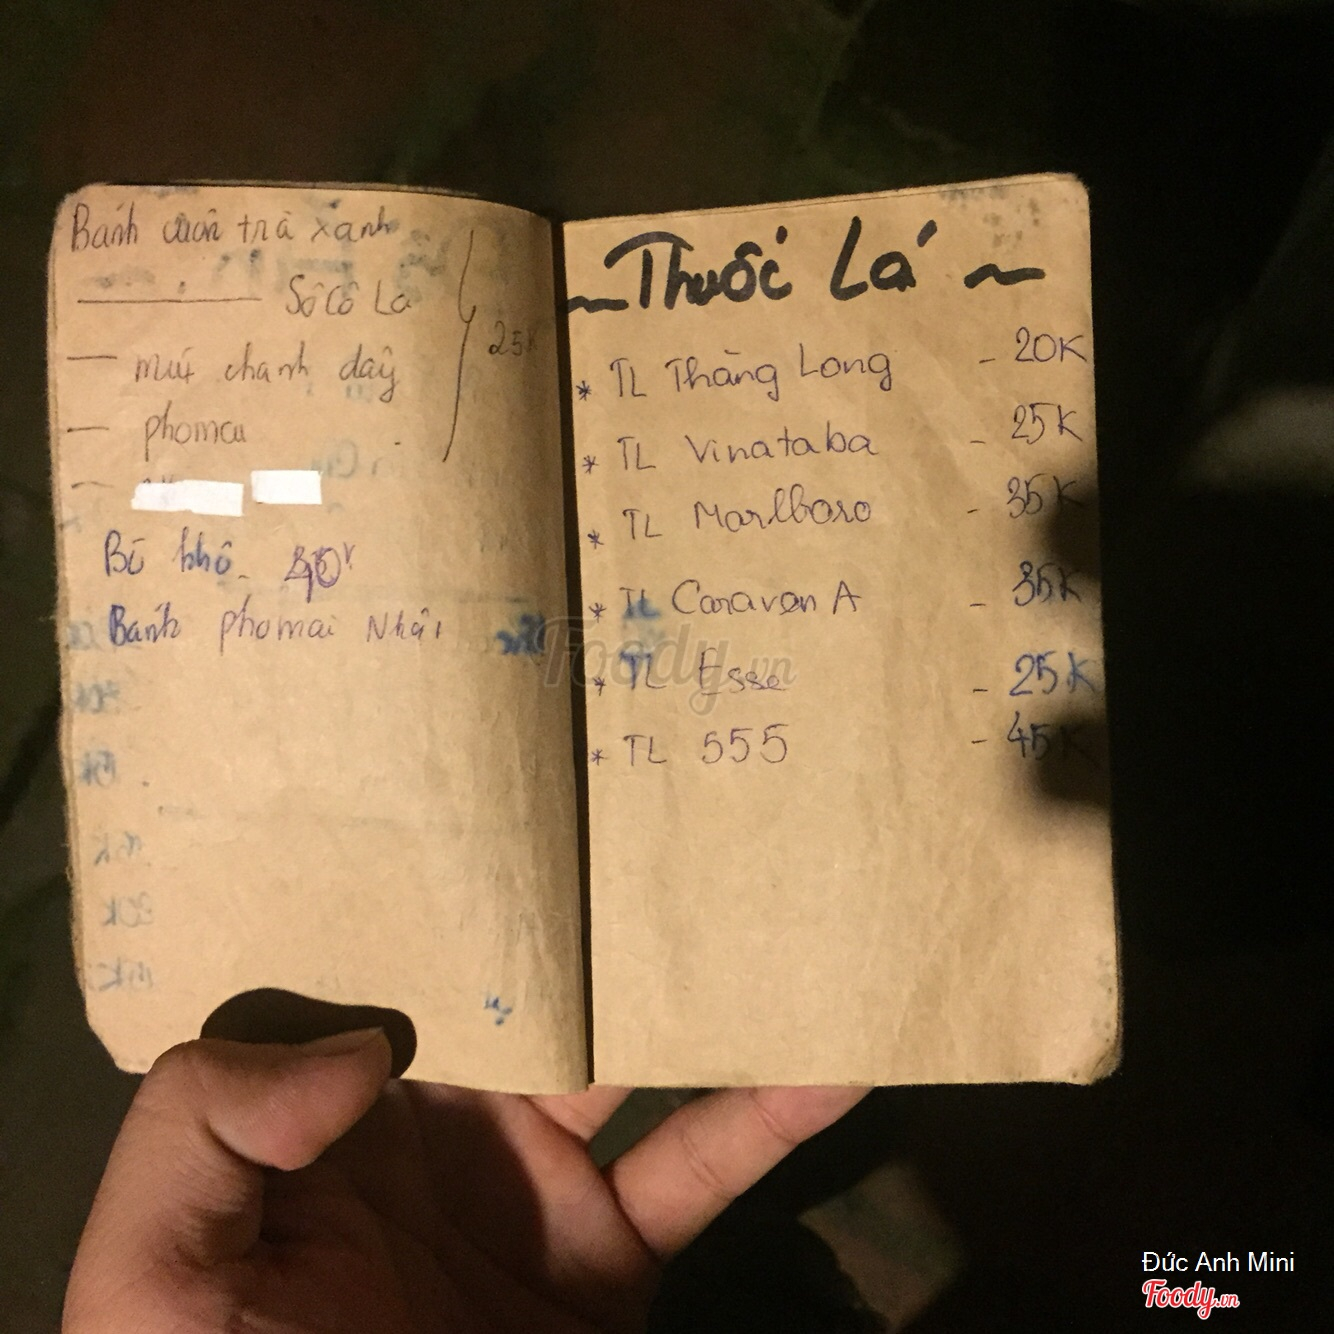 Bánh cuộn trà xanh
Sôcôla
mứt chanh dây
25K
phomai
Bò khô - 40k
Bánh phomai Nhật
~ Thuốc Lá ~
* TL Thăng Long - 20K
* TL Vinataba - 25K
* TL Marlboro - 35K
* TL Caraven A - 35K
* TL Esse - 25K
* TL 555 - 45K
Foody.vn
Đức Anh Mini
Foody.vn